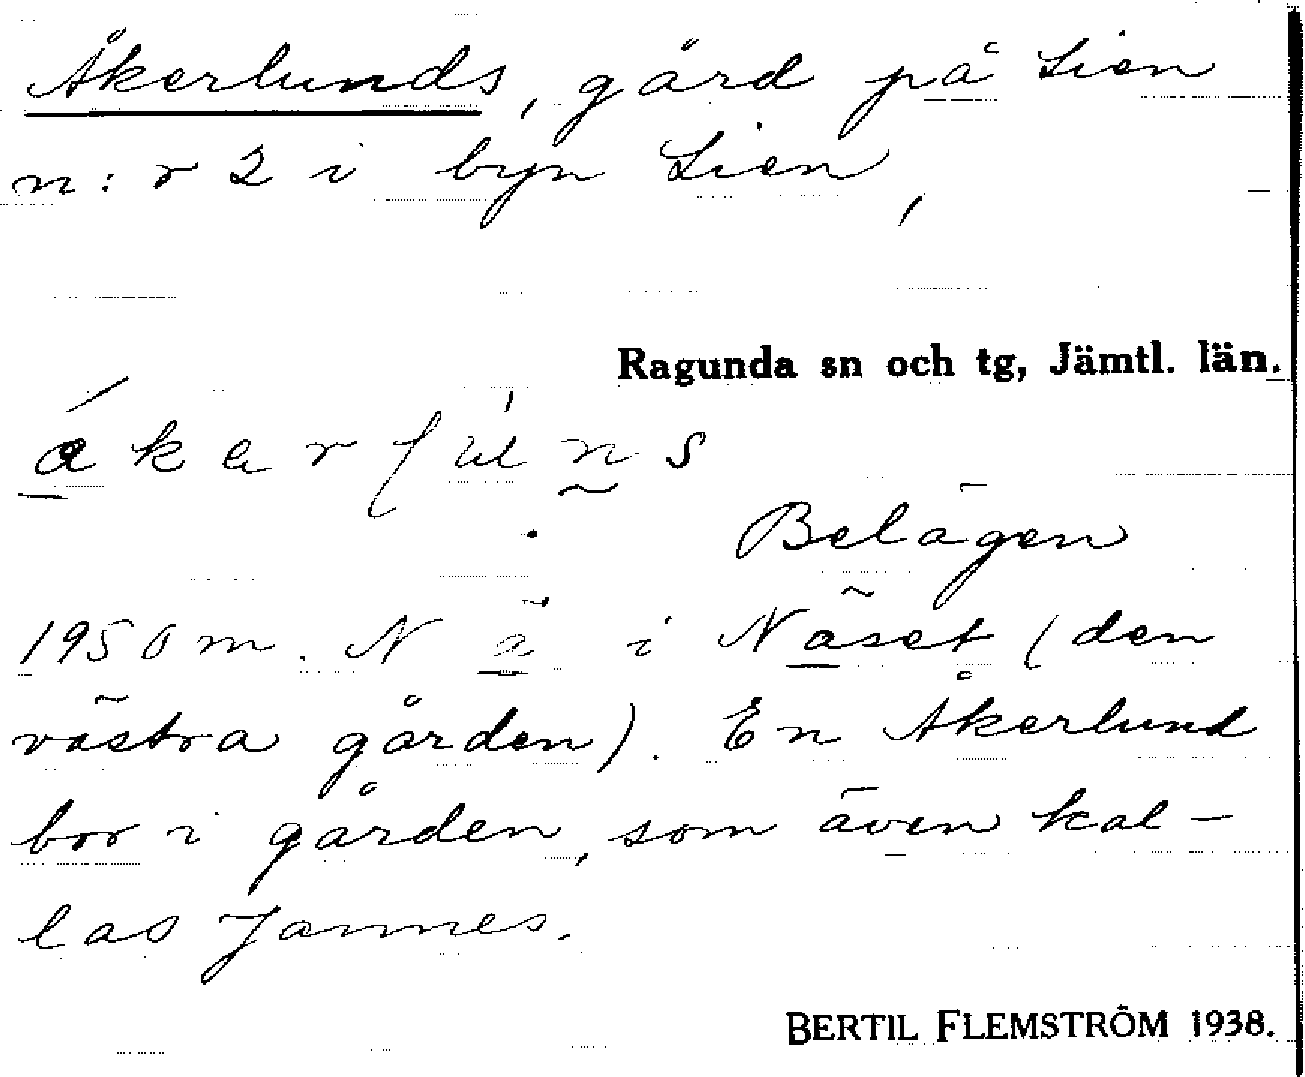 Åkerlunds, gård på Lien
n:r 2 i byn Lien,
Ragunda sn och tg, Jämtl. län.
Belägen
1950 m. N ä i Näset (den
västra gården). En Åkerlund
bor i gården, som även kal-
las Jannes.
BERTIL FLEMSTRÖM 1938.